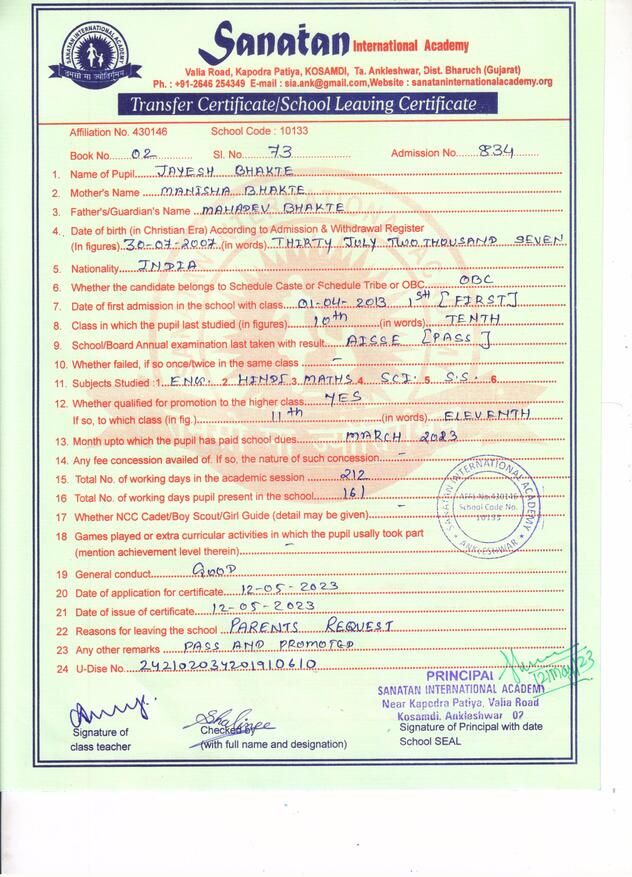 SANATAN INTERNATIONAL ACADEMY
तमसो मा ज्योतिर्गमय
Sanatan International Academy
Valia Road, Kapodra Patiya, KOSAMDI, Ta. Ankleshwar, Dist. Bharuch (Gujarat)
Ph. : +91-2646 254349 E-mail : sia.ank@gmail.com,Website : sanataninternationalacademy.org
Transfer Certificate/School Leaving Certificate
Affiliation No. 430146 School Code : 10133
Book No. 02 Sl. No. 73 Admission No. 834
1. Name of Pupil JAYESH BHAKTE
2. Mother's Name MANISHA BHAKTE
3. Father's/Guardian's Name MAHADEV BHAKTE
4. Date of birth (in Christian Era) According to Admission & Withdrawal Register
(In figures) 30-07-2007 (in words) THIRTY JULY TWO THOUSAND SEVEN
5. Nationality INDIA
6. Whether the candidate belongs to Schedule Caste or Schedule Tribe or OBC OBC
7. Date of first admission in the school with class 01-04-2013 1st [FIRST]
8. Class in which the pupil last studied (in figures) 10th (in words) TENTH
9. School/Board Annual examination last taken with result AISSE [PASS]
10. Whether failed, if so once/twice in the same class –
11. Subjects Studied :1 ENG. 2. HINDI 3. MATHS 4. SCI. 5. S.S. 6.
12. Whether qualified for promotion to the higher class YES
If so, to which class (in fig.) 11th (in words) ELEVENTH
13. Month upto which the pupil has paid school dues MARCH 2023
14. Any fee concession availed of. If so, the nature of such concession –
15. Total No. of working days in the academic session 212
16 Total No. of working days pupil present in the school 161
17 Whether NCC Cadet/Boy Scout/Girl Guide (detail may be given) –
18 Games played or extra curricular activities in which the pupil usally took part
(mention achievement level therein) –
SANATAN INTERNATIONAL ACADEMY
Affi. No. 430146
School Code No.
10133
ANKLESHWAR
19 General conduct GOOD
20 Date of application for certificate 12-05-2023
21 Date of issue of certificate 12-05-2023
22 Reasons for leaving the school PARENTS REQUEST
23 Any other remarks PASS AND PROMOTED
24 U-Dise No. 242102034201910610
12/May/23
PRINCIPAL
SANATAN INTERNATIONAL ACADEMY
Near Kapodra Patiya, Valia Road
Kosamdi. Ankleshwar 02
Signature of
class teacher
Checked by
(with full name and designation)
Signature of Principal with date
School SEAL